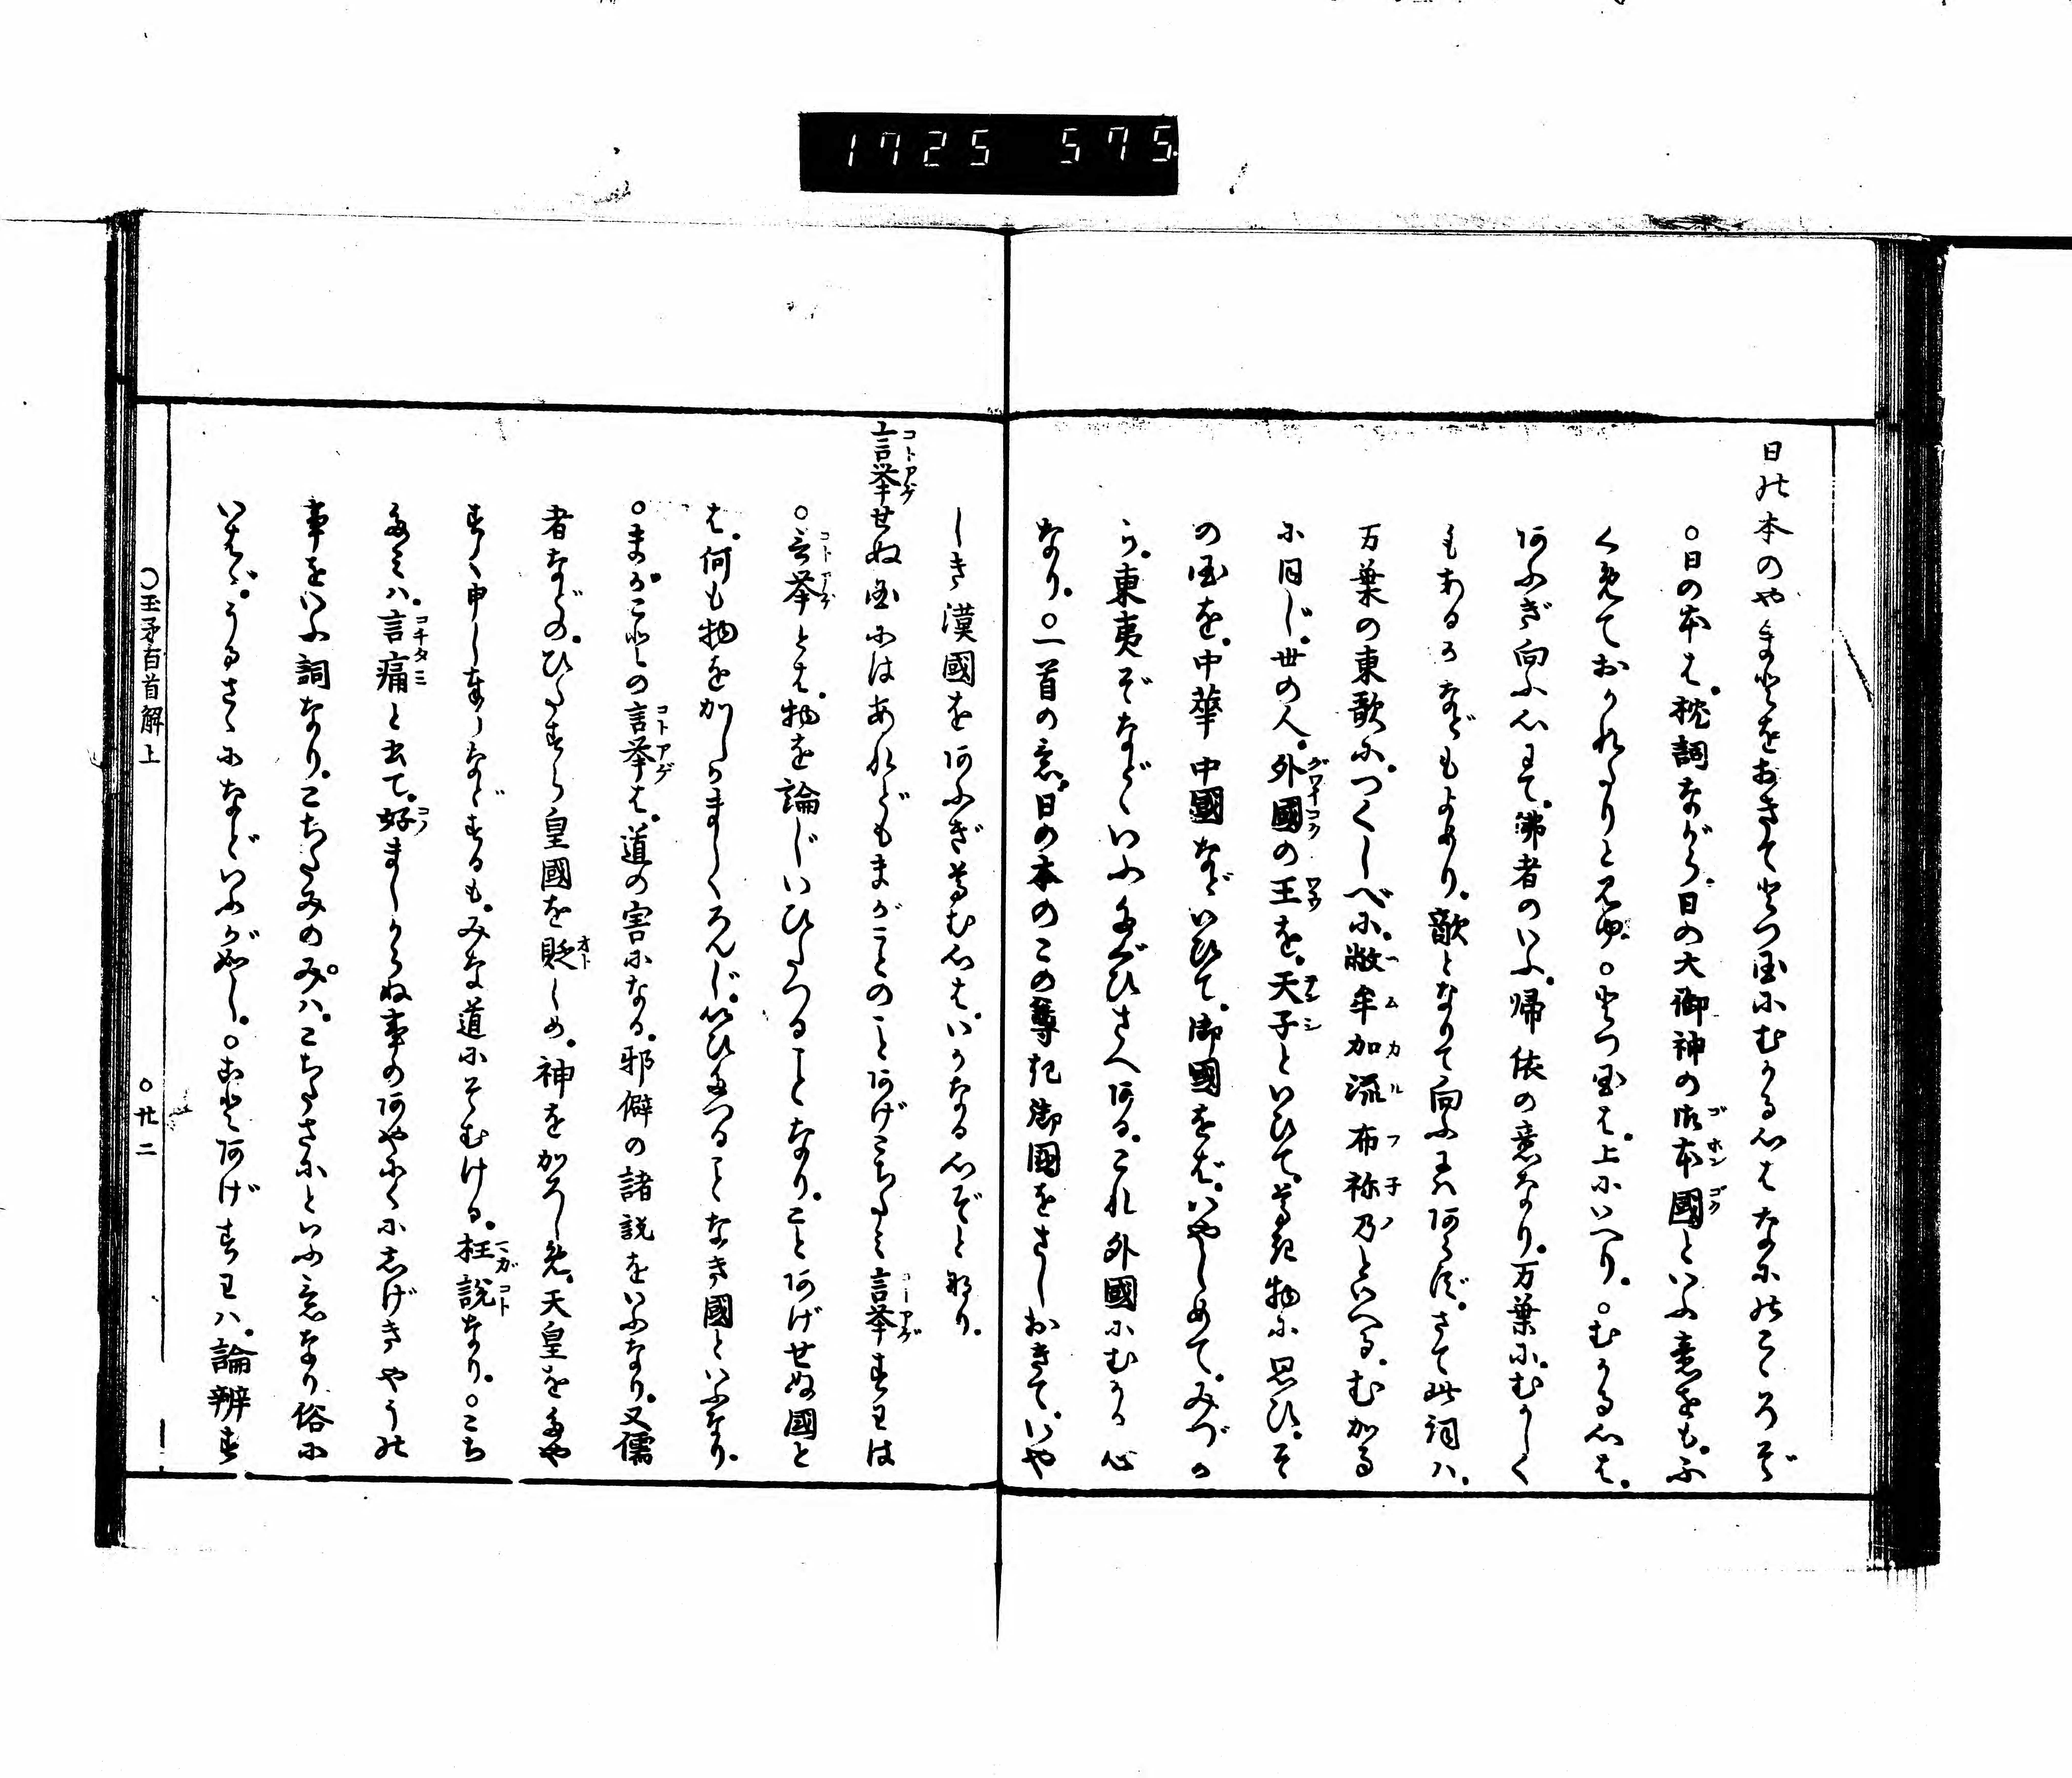 1725 575
日の本のやまとをおきてとつ国にむかふ心はなにのこゝろぞ
○日の本は。枕詞ながら。日の大御神の御本國といふ意をも。ふ
くめておかれたりと見ゆ。○とつ国は。上にいへり。○むかふ心は。
あふぎ向ふ心にて。佛者のいふ。帰依の意なり。万葉に。むかしく
もあるかなどもよめり。敵となりて向ふにはあらず。さて此詞ハ。
万葉の東歌に。つくしべに。敝牟加流布祢乃といへる。むかる
に同じ。世の人。外國の王を。天子といひて。尊き物に思ひ。そ
の国を。中華中國などいひて。御國をば。いやしめて。みづか
ら。東夷ぞなどゝいふたぐひさへある。これ外國にむかふ心
なり。○一首の意。日の本のこの尊き御国をさしおきて。いや
しき漢國をあふぎ尊む心は。いかなる心ぞと也り。
言挙せぬ国にはあれどもまがことのことあげこちたみ言挙すわれは
○言挙とは。物を論じいひたつることなり。ことあげせぬ国と
は。何も物をかしかましくろんじ。いひたつることなき國といふなり。
○まがことの言挙は。道の害になる。邪僻の諸説をいふなり。又儒
者などの。ひたすら皇國を貶しめ。神をかろしめ。天皇をたや
すく申しなしなどするも。みな道にそむける。枉説なり。○こち
たミハ。言痛と書て。好ましからぬ事のあやにくにしげきやうの
事をいふ詞なり。こちたみのみハ。こちたさにといふ意なり俗に
いはゞ。うるさゝになどいふが如し。○ことあげすわハ。論辨す
○玉矛百首解上
○廿二